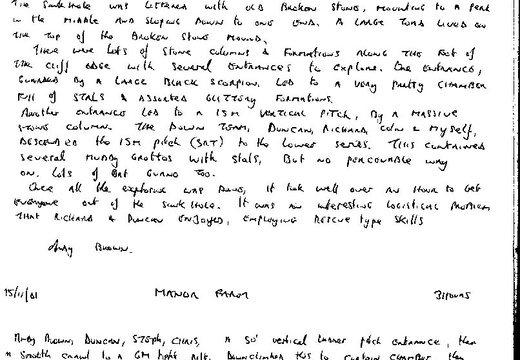 The sinkhole was littered with old broken stone, mounting to a peak
in the middle and sloping down to one end. A large toad lived on
the top of the broken stone mound.
There were lots of stone columns & formations along the foot of
the cliff edge with several entrances to explore. One entrance,
guarded by a large black scorpion, led to a very pretty chamber
full of stals & assorted glittery formations.
Another entrance led to a 15m vertical pitch, by a massive
stone column. The down team, Duncan, Richard, Colin & myself,
descended the 15m pitch (SRT) to the lower series. This contained
several muddy grottos with stals, but no percovable way
on. Lots of bat guano too.
Once all the exploring was done, it took well over an hour to get
everyone out of the sinkhole. It was an interesting logistical problem
that Richard & Duncan enjoyed, employing rescue type skills
Andy Brown.
15/11/01 MANOR FARM 3 HOURS
Andy Brown, Duncan, Steph, Chris. A 50' vertical ladder pitch entrance, then
a smooth crawl to a 6m high aven. Downclimbed this to curtain chamber, then